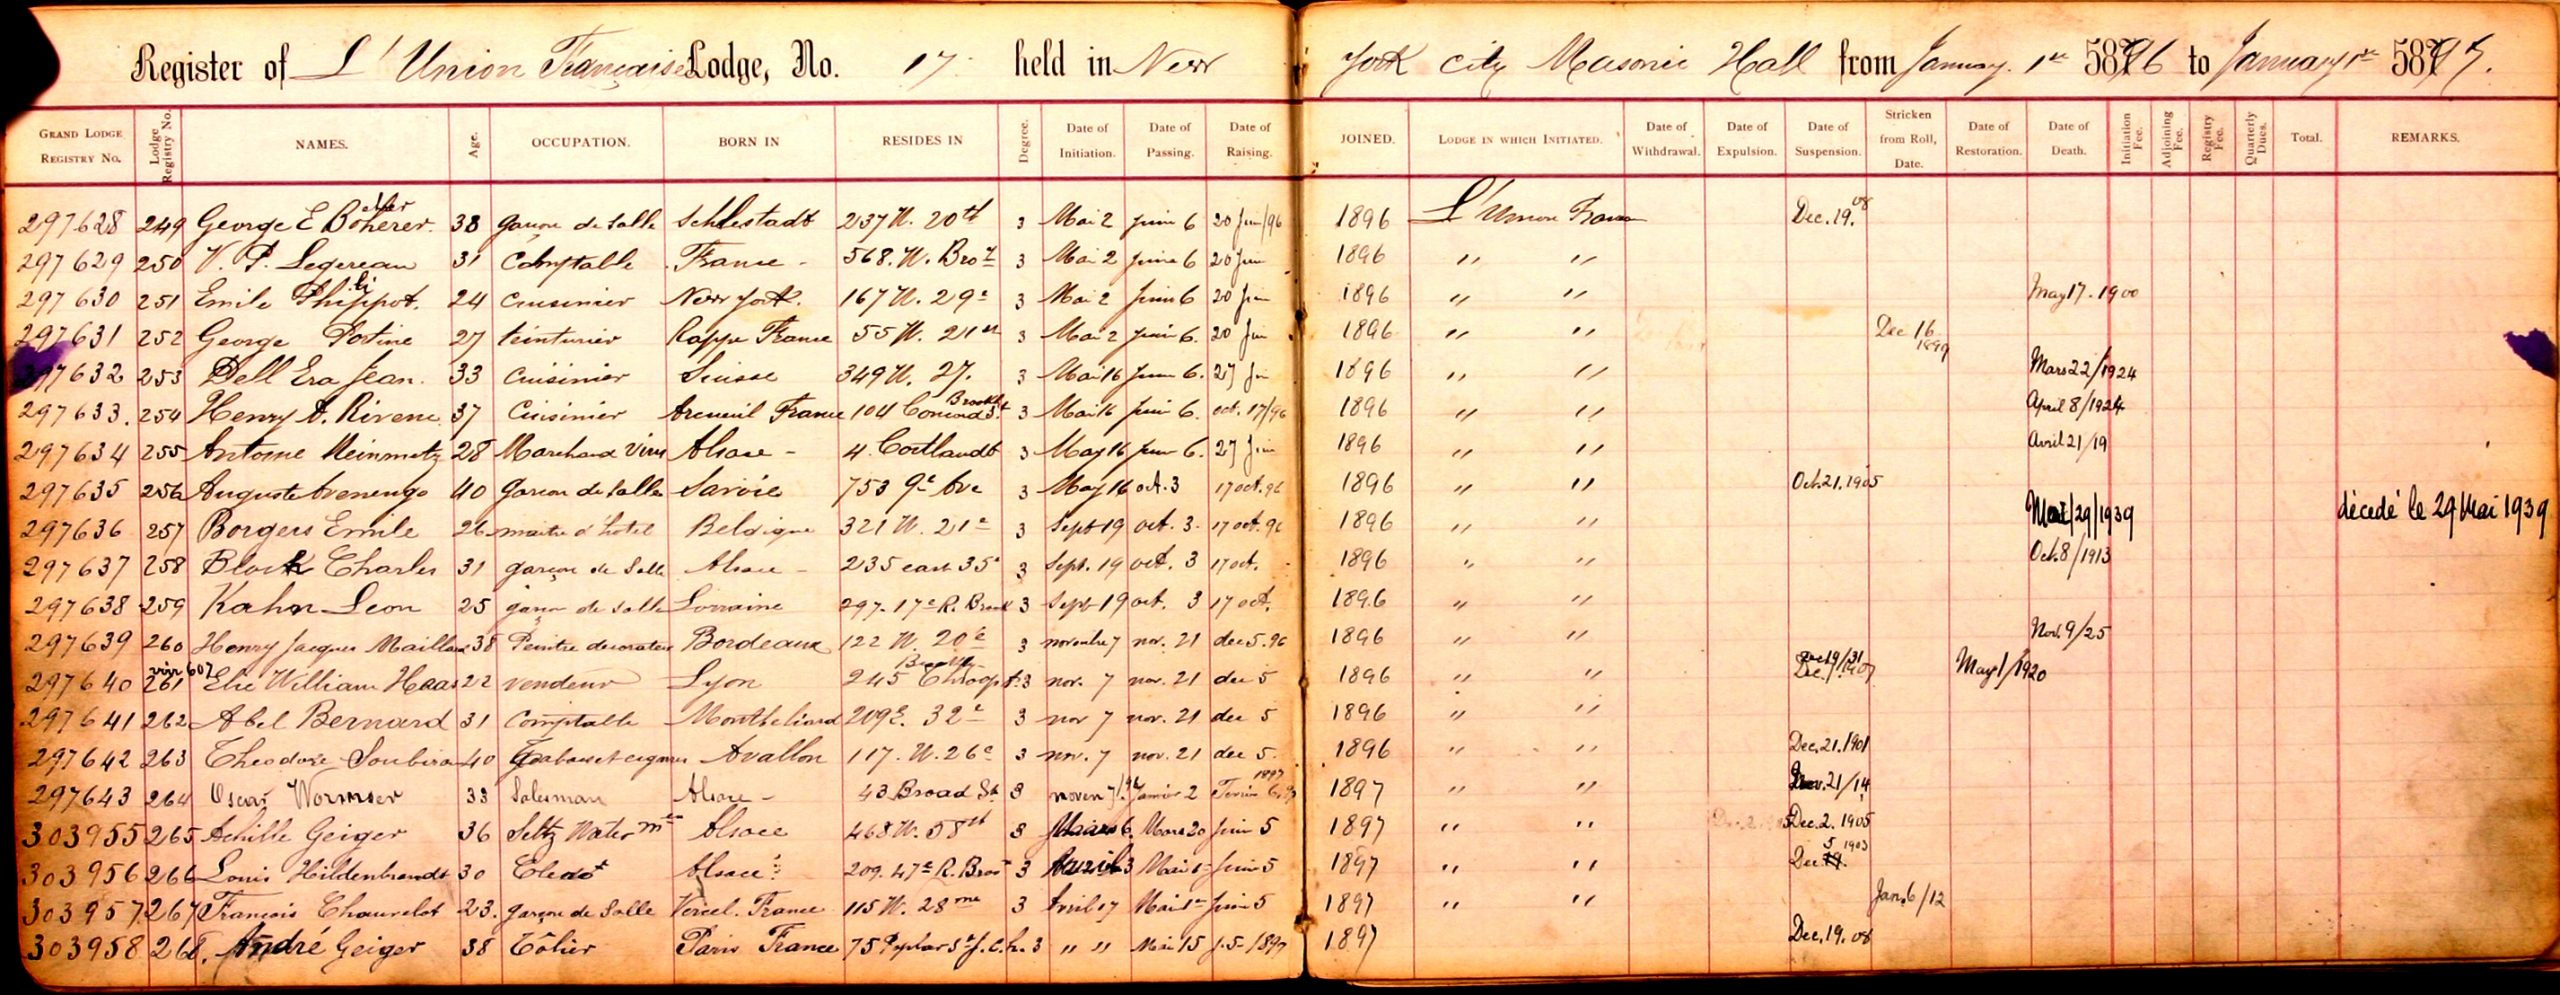 Register of L'Union Française Lodge, No. 17 held in New York City Masonic Hall from January 1st 5896 to January 1st 5897.
GRAND LODGE REGISTRY No. Lodge Registry No. NAMES. Age. OCCUPATION. BORN IN RESIDES IN Degree. Date of Initiation. Date of Passing. Date of Raising. JOINED. LODGE IN WHICH INITIATED. Date of Withdrawal. Date of Expulsion. Date of Suspension. Stricken from Roll, Date. Date of Restoration. Date of Death. Initiation Fee. Adjoining Fee. Registry Fee. Quarterly Dues. Total. REMARKS.
297628 249 George E Boherer 38 garçon de salle Schlestadt 237 W. 20th 3 Mai 2 juin 6 20 Juin/96 1896 L'Union Dec. 19. 08
297629 250 V. P. Legereau 31 Comptable France 568. W. 3 Mai 2 juin 6 20 Juin 1896 " "
297630 251 Emile 24 Cuisinier New York. 167 W. 29e 3 Mai 2 Juin 6 20 Juin 1896 " " May 17. 1900
297631 252 George Postine 27 teinturier Rappe France 55 W. 21st 3 Mai 2 Juin 6. 20 Juin 1896 " " Dec 16 1899
297632 253 Dell Era Jean. 33 Cuisinier Suisse 349 W. 27. 3 Mai 16 Juin 6. 27 Jun 1896 " " Mars 22/1924
297633. 254 Henry A. 37 Cuisinier Arcueil France 104 Concord St 3 Mai 16 Juin 6. oct. 17/96 1896 " " April 8/1924
297634 255 Antoine Meinmetz 28 Marchand Vins Alsace 4. Cortlandt 3 May 16 Juin 6. 27 Juin 1896 " " Avril 21/19
297635 256 Auguste Avenengo 40 Garçon de salle Savoie 753 9e Ave 3 May 16 oct. 3 17 oct. 96 1896 " " Oct. 21. 1905
297636 257 Borgers Emile 26 maitre d'hotel Belgique 321 W. 21e 3 Sept 19 oct. 3. 17 oct. 96 1896 " " Mai/29/1939 décedé le 29 Mai 1939
297637 258 Block Charles 31 garçon de Salle Alsace 235 east 35e 3 Sept. 19 oct. 3 17 oct. 1896 " " Oct. 8/1913
297638 259 Kahn Leon 25 garçon de salle Lorraine 297. 17e R. 3 Sept 19 oct. 3 17 oct. 1896 " "
297639 260 Henry Jacques Maillard 38 Peintre decorateur Bordeaux 122 W. 20e 3 novembre 7 nov. 21 dec 5. 96 1896 " " Nov. 9/25
297640 261 voir 607 Elie William Haas 22 vendeur Lyon 245 3 nov. 7 nov. 21 dec 5 1896 " " Dec 19/31 Dec. 7. 1907 May 1/1920
297641 262 Abel Bernard 31 Comptable Montbeliard 209 E. 32e 3 nov 7 nov. 21 dec 5 1896 " "
297642 263 Theodore Soubiran 40 Avallon 117. W. 26e 3 nov. 7 nov. 21 dec 5. 1896 " " Dec. 21. 1901
297643 264 Oscar Wormser 33 Salesman Alsace 43 Broad St 3 noven 7/96 Janvier 2 1897 1897 " " Nov. 21/14
303955 265 Achille Geiger 36 Seltz Water Alsace 468 W. 58th 3 Mars 6. Mars 20 Juin 5 1897 " " Dec. 2. 1905
303956 266 Louis Hildenbrandt 30 Alsace 209. 47e R. 3 Avril 3 Mai 1er Juin 5 1897 " " Dec. 5 1903
303957. 267 François Chauvelot 23. garçon de Salle Vercel. France 115 W. 28me 3 Avril 17 Mai 1er Juin 5 1897 " " Jan. 6/12
303958 268. André Geiger 38 Tôlier Paris France 75 3 " " Mai 15 J. 5 1897 1897 Dec. 19. 08